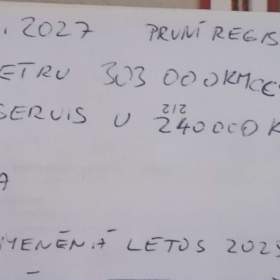 . 2027 PRVNÍ REGIS
ETRU 303 000KMCE
212
SERVIS U 240000 K
A
LETOS 202